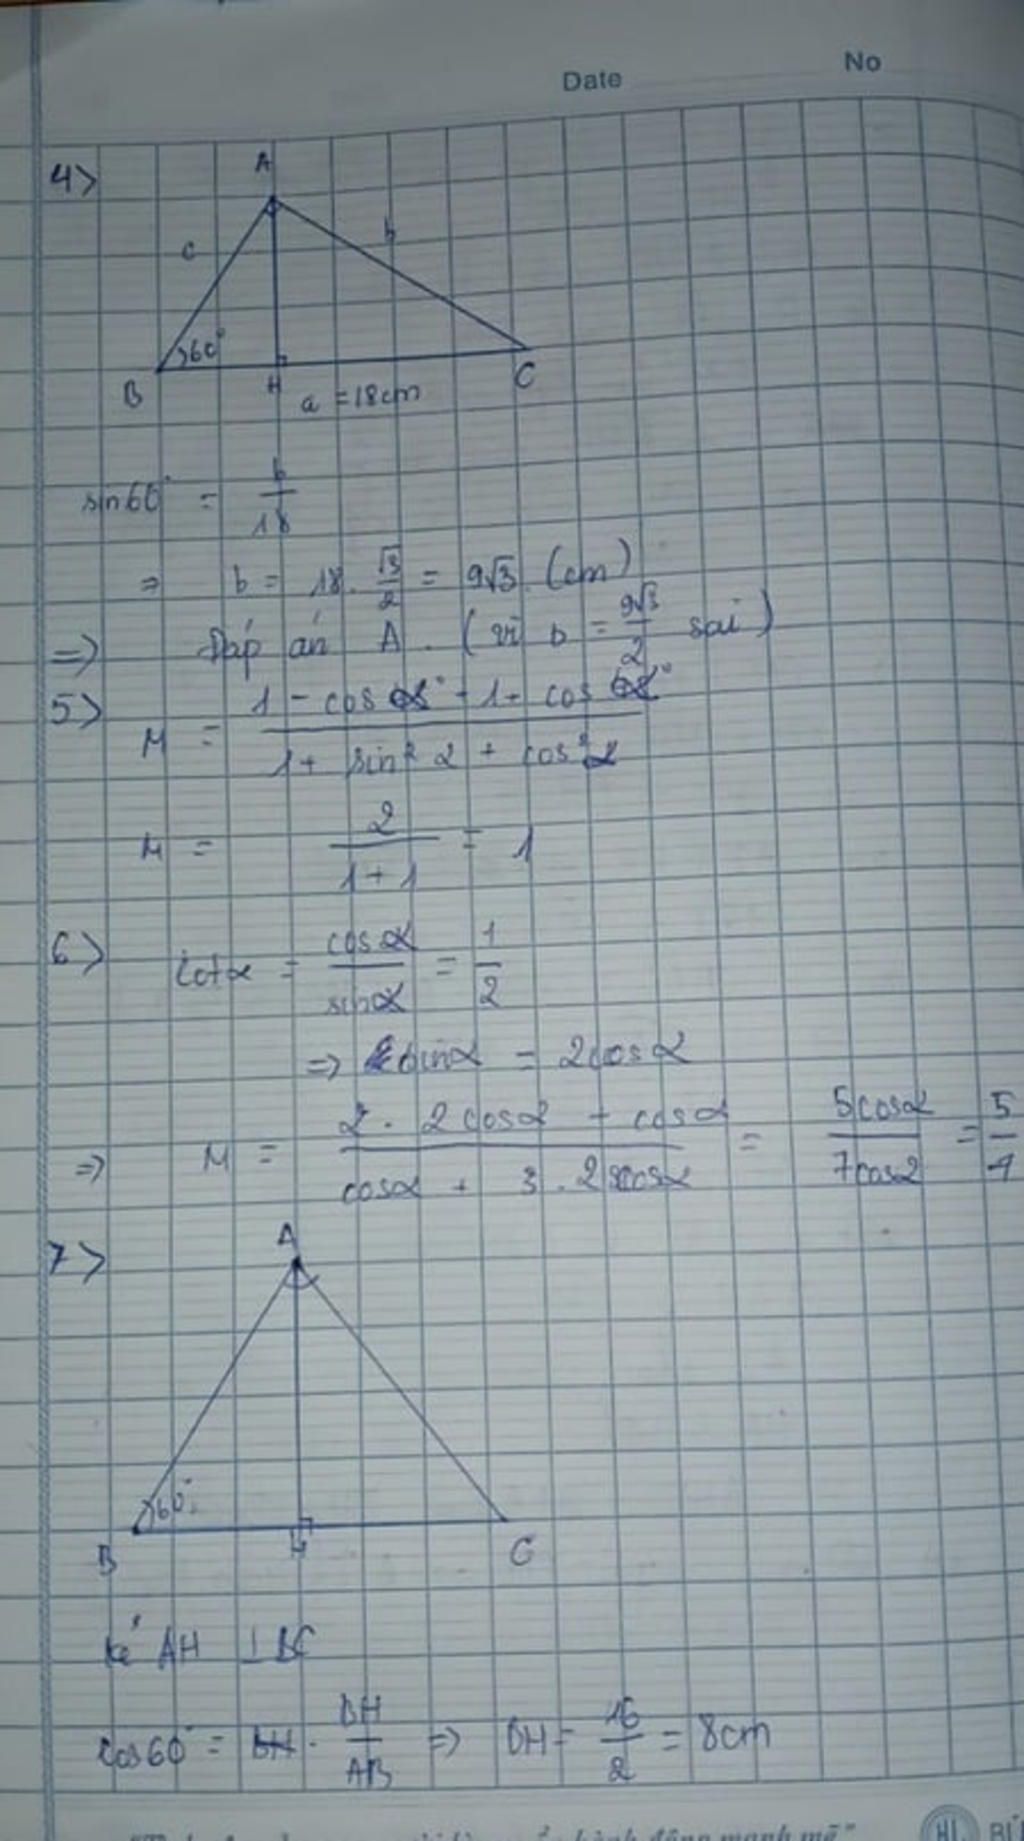 Date No
4>
A
c b
60°
B H C
a = 18cm
sin60° = b/18
=> b = 18. √3/2 = 9√3 (cm)
=> Đáp án A. (vì b = 9√3/2 sai)
5> M = 1 - cos - 1 + cos / 1 + sin² α + cos² α
M = 2/1+1 = 1
6> Cotα = cosα/sinα = 1/2
=> sinα = 2cosα
=> M = 2. 2cosα + cosα / cosα + 3. 2cosα = 5cosα/7cosα = 5/7
7>
A
60°
B H C
kẻ AH ⊥ BC
cos60° = BH/AB => BH = 16/2 = 8cm
hành động mạnh mẽ"